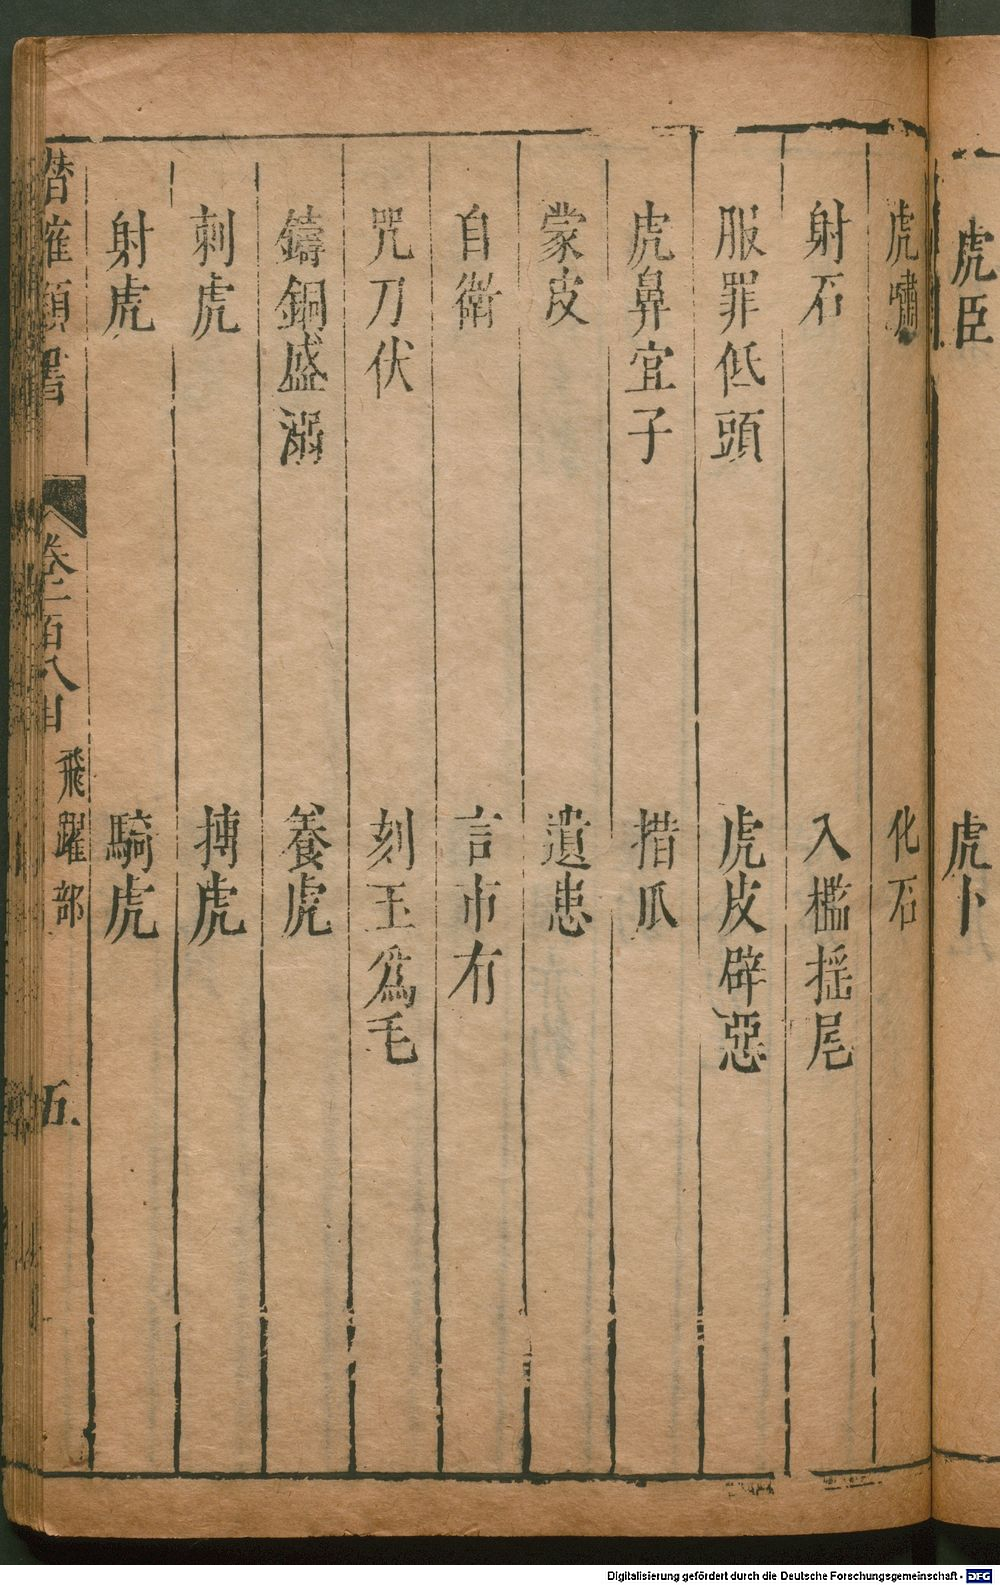 虎臣 虎卜
虎嘯 化石
射石 入檻搖尾
服罪低頭 虎皮辟惡
虎鼻宜子 措爪
蒙皮 遺患
自衛 言市有
咒刀伏 刻玉為毛
鑄銅盛溺 養虎
刺虎 搏虎
射虎 騎虎
潛確類書 卷二百八目 飛躍部 五
Digitalisierung gefördert durch die Deutsche Forschungsgemeinschaft - DFG